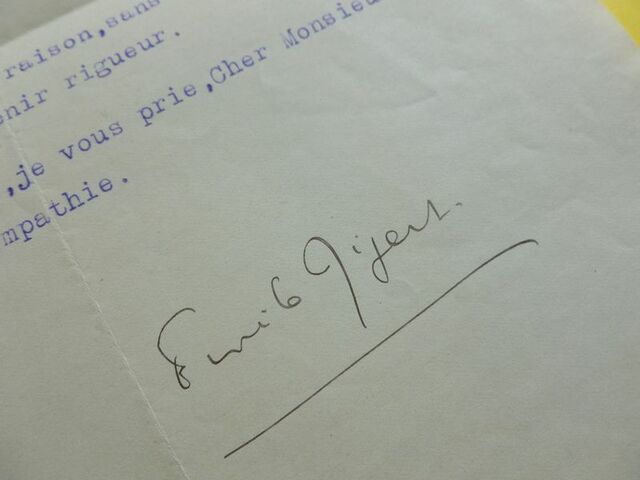 raison,sans
enir rigueur.
,je vous prie,Cher Monsieu
mpathie.
Emile